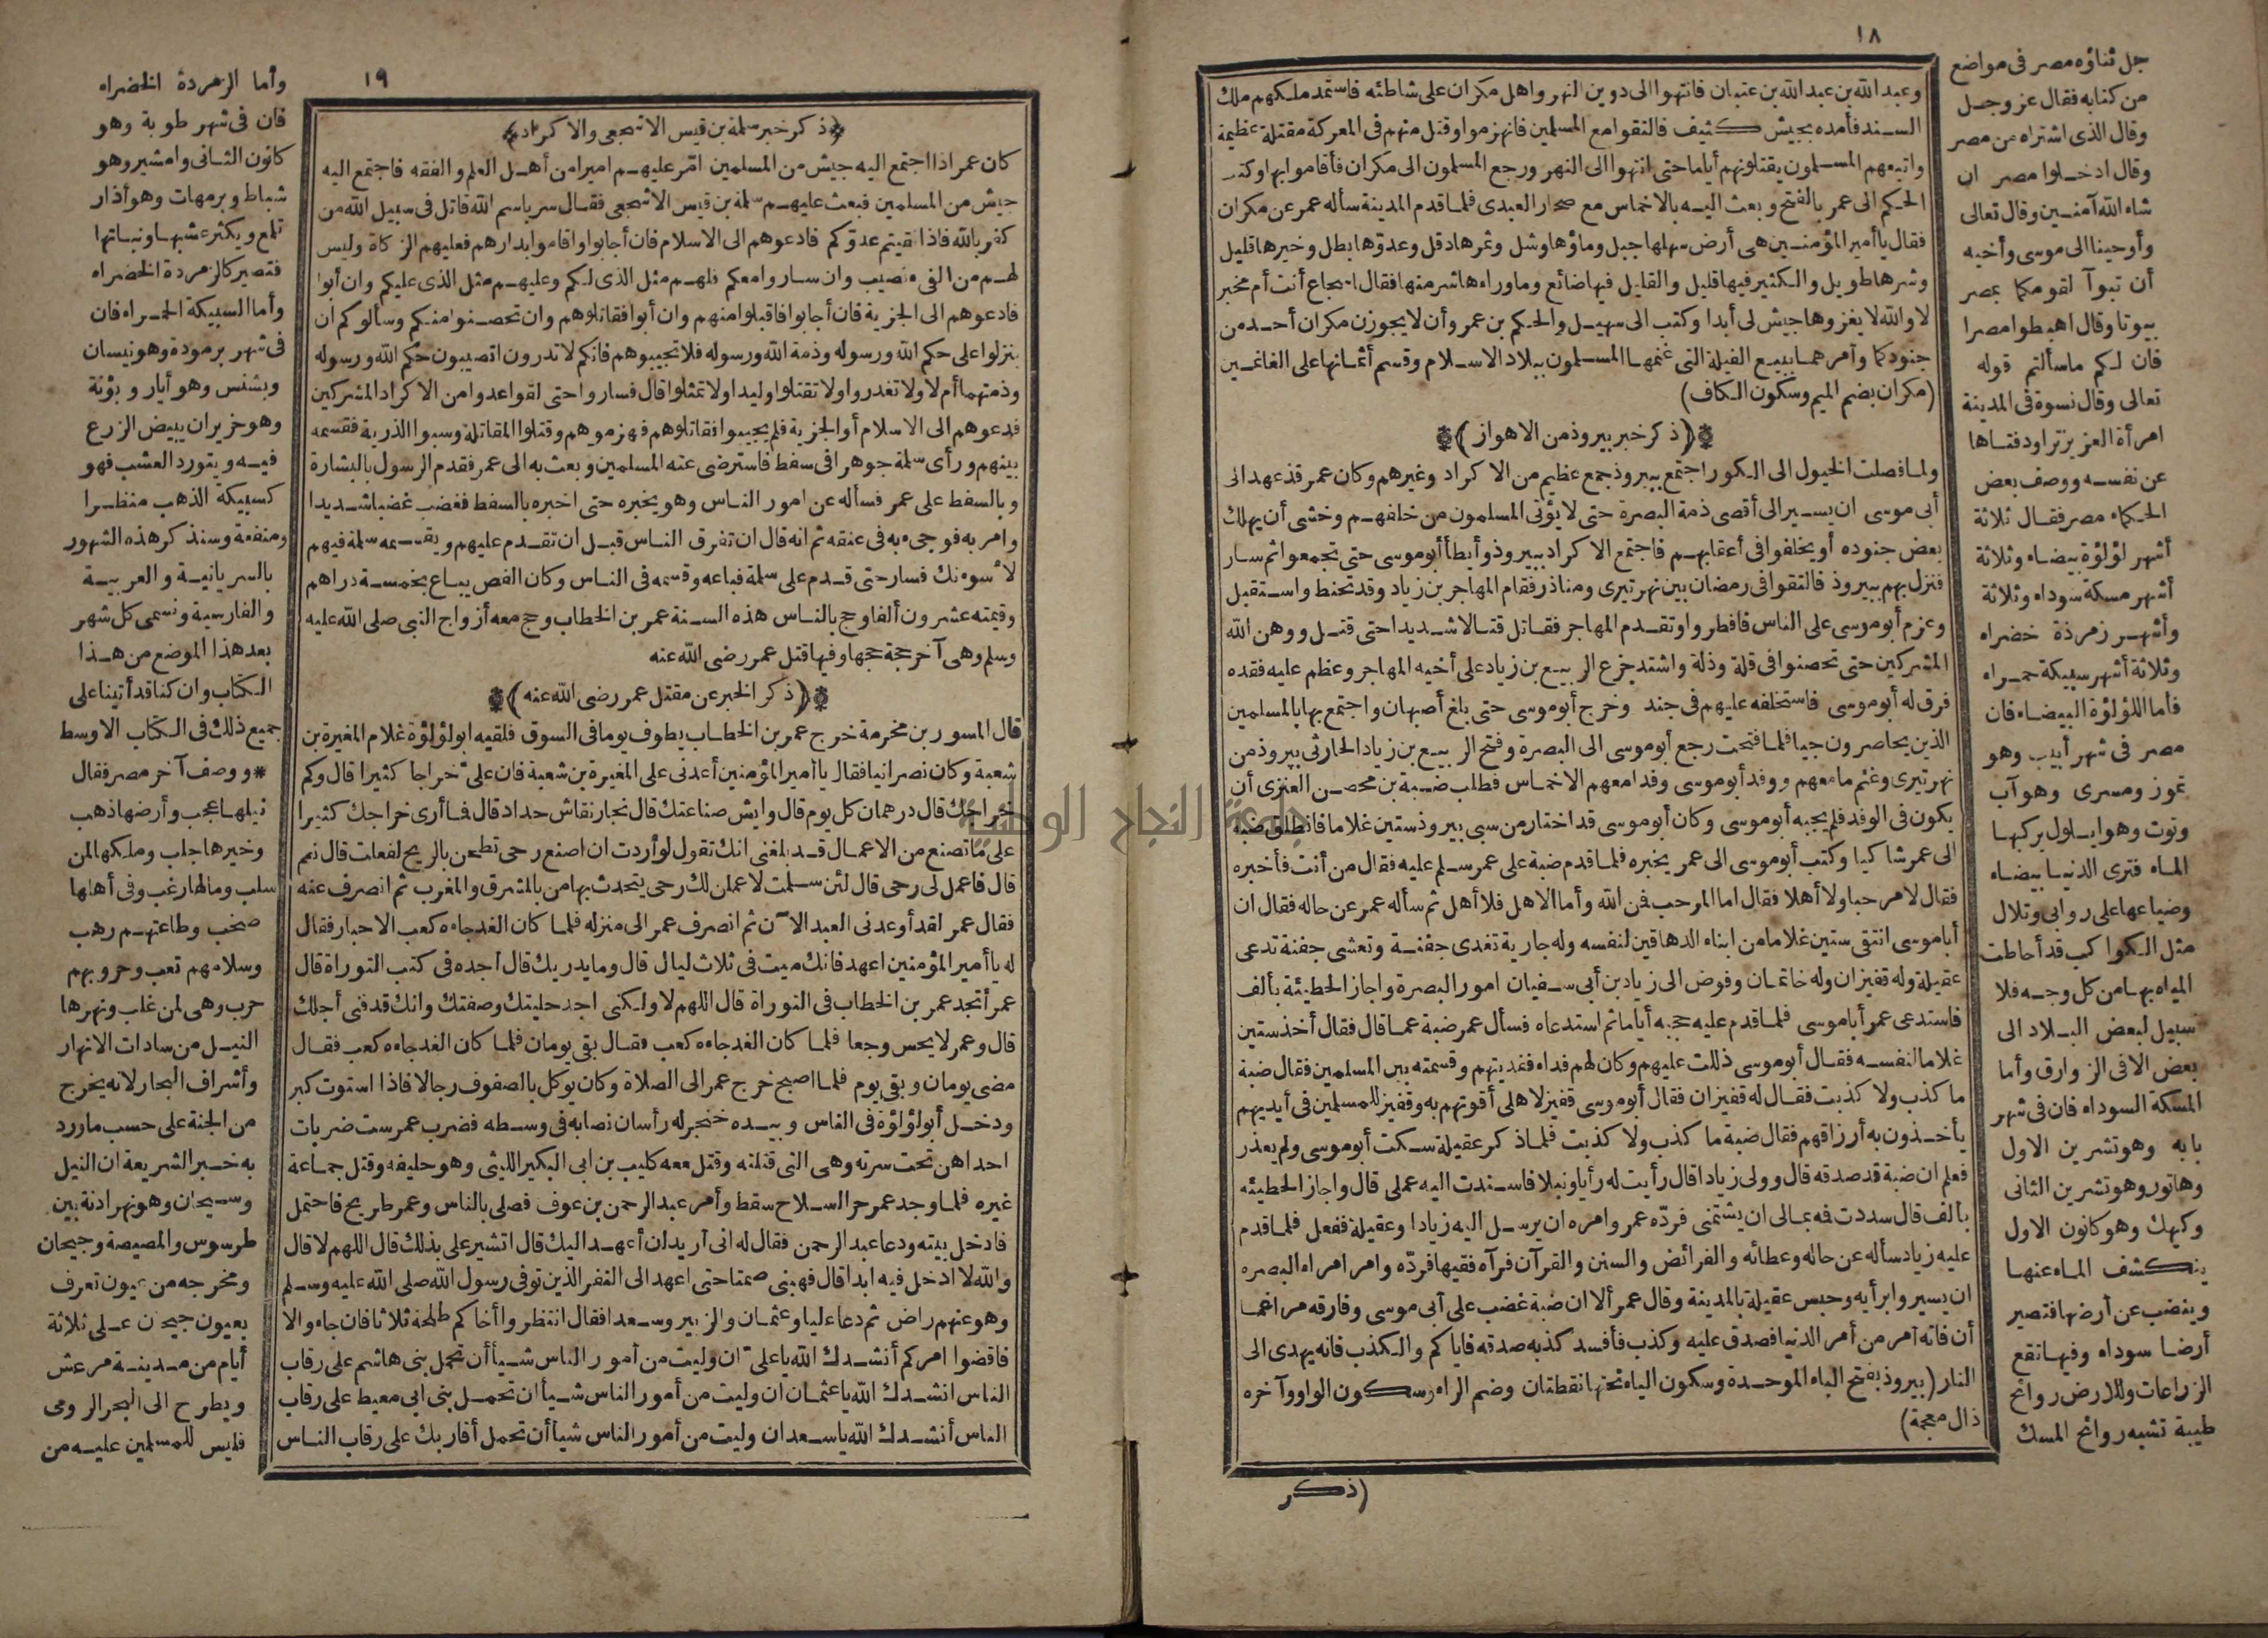 ١٨
وعبد الله بن عبد الله بن عتبان فانتهوا الى دوين النهر واهل مكران على شاطئه فاستمد ملكهم ملك
السند فأمده بجيش كثيف فالتقوا مع المسلمين فانهزموا وقتل منهم فى المعركة مقتلة عظيمة
واتبعهم المسلمون يقتلونهم أياما حتى انتهوا الى النهر ورجع المسلمون الى مكران فأقاموا بها وكتب
الحكم الى عمر بالفتح وبعث اليه بالاخماس مع صحار العبدى فلما قدم المدينة سأله عمر عن مكران
فقال يا أمير المؤمنين هى أرض سهلها جبل وماؤها وشل وثمرها دقل وعدوّها بطل وخيرها قليل
وشرها طويل والكثير فيها قليل والقليل فيها ضائع وما وراءها شر منها فقال اسجاع أنت أم مخبر
لا والله لا يغزوها جيش لى أبدا وكتب الى سهيل والحكم بن عمرو أن لا يجوزن مكران أحد من
جنودكما وأمرهما ببيع الفيلة التى غنمها المسلمون ببلاد الاسلام وقسم أثمانها على الغانمين
(مكران بضم الميم وسكون الكاف)
(ذكر خبر بيروذ من الاهواز)
ولما فصلت الخيول الى الكور اجتمع ببيروذ جمع عظيم من الاكراد وغيرهم وكان عمر قد عهد الى
أبى موسى ان يسير الى أقصى ذمة البصرة حتى لا يؤتى المسلمون من خلفهم وخشى أن يهلك
بعض جنوده أو يخلفوا فى أعقابهم فاجتمع الاكراد ببيروذ وأبطأ أبو موسى حتى تجمعوا ثم سار
فنزل بهم ببيروذ فالتقوا فى رمضان بين نهر تيرى ومناذر فقام المهاجر بن زياد وقد تحنط واستقبل
وعزم أبو موسى على الناس فافطروا وتقدم المهاجر فقاتل قتالا شديدا حتى قتل ووهن الله
المشركين حتى تحصنوا فى قلة وذلة واشتد جزع الربيع بن زياد على أخيه المهاجر وعظم عليه فقده
فرق له أبو موسى فاستخلفه عليهم فى جند وخرج أبو موسى حتى بلغ أصبهان واجتمع بها بالمسلمين
الذين يحاصرون جيا فلما فتحت رجع أبو موسى الى البصرة وفتح الربيع بن زياد الحارثى بيروذ من
نهر تيرى وغنم ما معهم ووفد أبو موسى وفدا معهم الاخماس فطلب ضبة بن محصن العنزى أن
يكون فى الوفد فلم يجبه أبو موسى وكان أبو موسى قد اختار من سبى بيروذ ستين غلاما فانطلق ضبة
الى عمر شاكيا وكتب أبو موسى الى عمر يخبره فلما قدم ضبة على عمر سلم عليه فقال من أنت فأخبره
فقال لا مرحبا ولا أهلا فقال اما المرحب فن الله وأما الاهل فلا أهل ثم سأله عمر عن حاله فقال ان
أبا موسى انتقى ستين غلاما من ابناء الدهاقين لنفسه وله جارية تغدى جفنة وتعشى جفنة تدعى
عقيلة وله قفيزان وله خاتمان وفوض الى زياد بن أبى سفيان امور البصرة واجاز الحطيئة بألف
فاستدعى عمر أبا موسى فلما قدم عليه حجبه أياما ثم استدعاه فسأل عمر ضبة عما قال فقال أخذ ستين
غلاما لنفسه فقال أبو موسى دللت عليهم وكان لهم فداء ففديتهم وقسمته بين المسلمين فقال ضبة
ما كذب ولا كذبت فقال له قفيزان فقال أبو موسى قفيز لاهلى أقوتهم به وقفيز للمسلمين فى أيديهم
يأخذون به أرزاقهم فقال ضبة ما كذب ولا كذبت فلما ذكر عقيلة سكت أبو موسى ولم يعذر
فعلم ان ضبة قد صدقه قال وولى زيادا قال رأيت له رأيا ونبلا فاسندت اليه عملى قال واجاز الحطيئه
بألف قال سددت فه بمالى ان يشتمنى فردّه عمر وامره ان يرسل اليه زيادا وعقيلة ففعل فلما قدم
عليه زياد سأله عن حاله وعطائه والفرائض والسنن والقرآن فرآه فقيها فردّه وامر امراء البصره
ان يسيروا برأيه وحبس عقيلة بالمدينة وقال عمر ألا ان ضبة غضب على أبى موسى وفارقه مراغما
أن فاته أمر من أمر الدنيا فصدق عليه وكذب فأفسد كذبه صدقه فاياكم والكذب فانه يهدى الى
النار (بيروذ بفتح الباء الموحدة وسكون الياء تحتها نقطتان وضم الراء وسكون الواو وآخره
ذال معجمة)
(ذكر
جل ثناؤه مصر فى مواضع
من كتابه فقال عز وجل
وقال الذى اشتراه من مصر
وقال ادخلوا مصر ان
شاء الله آمنين وقال تعالى
وأوحينا الى موسى وأخيه
أن تبوآ لقومكما بمصر
بيوتا وقال اهبطوا مصرا
فان لكم ما سألتم قوله
تعالى وقال نسوة فى المدينة
امرأة العزيز تراود فتاها
عن نفسه ووصف بعض
الحكماء مصر فقال ثلاثة
أشهر لؤلؤة بيضاء وثلاثة
أشهر مسكة سوداء وثلاثة
وأشهر زمرذة خضراء
وثلاثة أشهر سبيكة حمراء
فأما اللؤلؤة البيضاء فان
مصر فى شهر أبيب وهو
تموز ومسرى وهو آب
وتوت وهو ايلول يركبها
الماء فترى الدنيا بيضاء
وضياعها على روابى وتلال
مثل الكواكب قد أحاطت
المياه بها من كل وجه فلا
سبيل لبعض البلاد الى
بعض الا فى الزوارق وأما
المسكة السوداء فان فى شهر
بابه وهو تشرين الاول
وهاتور وهو تشرين الثانى
وكيهك وهو كانون الاول
ينكشف الماء عنها
وينضب عن أرضها فتصير
أرضا سوداء وفيها تقع
الزراعات وللارض روائح
طيبة تشبه روائح المسك
١٩
ذكر خبر سلمة بن قيس الاشجعى والاكراد
كان عمر اذا اجتمع اليه جيش من المسلمين امّر عليهم اميرا من أهل العلم والفقه فاجتمع اليه
جيش من المسلمين فبعث عليهم سلمة بن قيس الاشجعى فقال سر باسم الله قاتل فى سبيل الله من
كفر بالله فاذا لقيتم عدوّكم فادعوهم الى الاسلام فان أجابوا واقاموا بدارهم فعليهم الزكاة وليس
لهم من الفىء نصيب وان ساروا معكم فلهم مثل الذى لكم وعليهم مثل الذى عليكم وان أبوا
فادعوهم الى الجزية فان أجابوا فاقبلوا منهم وان أبوا فقاتلوهم وان تحصنوا منكم وسألوكم أن
ينزلوا على حكم الله ورسوله وذمة الله ورسوله فلا تجيبوهم فانكم لا تدرون اتصيبون حكم الله ورسوله
وذمتهما أم لا ولا تغدروا ولا تقتلوا وليدا ولا تمثلوا قال فساروا حتى لقوا عدوا من الاكراد المشركين
فدعوهم الى الاسلام أو الجزية فلم يجيبوا فقاتلوهم فهزموهم وقتلوا المقاتلة وسبوا الذرية فقسمه
بينهم ورأى سلمة جوهرا فى سفط فاسترضى عنه المسلمين وبعث به الى عمر فقدم الرسول بالبشارة
وبالسفط على عمر فسأله عن امور الناس وهو يخبره حتى اخبره بالسفط فغضب غضبا شديدا
وامر به فوجىء به فى عنقه ثم انه قال ان تفرق الناس قبل ان تقدم عليهم ويقسمه سلمة فيهم
لأسوءنك فسار حتى قدم على سلمة فباعه وقسمه فى الناس وكان الفص يباع بخمسة دراهم
وقيمته عشرون ألفا وحج بالناس هذه السنة عمر بن الخطاب وحج معه أزواج النبى صلى الله عليه
وسلم وهى آخر حجة حجها وفيها قتل عمر رضى الله عنه
(ذكر الخبر عن مقتل عمر رضى الله عنه)
قال المسور بن مخرمة خرج عمر بن الخطاب يطوف يوما فى السوق فلقيه ابو لؤلؤة غلام المغيرة بن
شعبة وكان نصرانيا فقال يا أمير المؤمنين أعدنى على المغيرة بن شعبة فان علىّ خراجا كثيرا قال وكم
خراجك قال درهمان كل يوم قال وايش صناعتك قال نجار نقاش حداد قال فا أرى خراجك كثيرا
على ما تصنع من الاعمال قد بلغنى انك تقول لو أردت ان اصنع رحى تطحن بالريح لفعلت قال نعم
قال فاعمل لى رحى قال لئن سلمت لاعملن لك رحى يتحدث بها من بالمشرق والمغرب ثم انصرف عنه
فقال عمر لقد أوعدنى العبد الآن ثم انصرف عمر الى منزله فلما كان الغد جاءه كعب الاحبار فقال
له يا أمير المؤمنين اعهد فانك ميت فى ثلاث ليال قال وما يدريك قال أجده فى كتب التوراة قال
عمر أتجد عمر بن الخطاب فى التوراة قال اللهم لا ولكنى اجد حليتك وصفتك وانك قد فنى أجلك
قال وعمر لا يحس وجعا فلما كان الغد جاءه كعب فقال بقى يومان فلما كان الغد جاءه كعب فقال
مضى يومان وبقى يوم فلما اصبح خرج عمر الى الصلاة وكان يوكل بالصفوف رجالا فاذا استوت كبر
ودخل أبو لؤلؤة فى الناس وبيده خنجر له رأسان نصابه فى وسطه فضرب عمر ست ضربات
احداهن تحت سرته وهى التى قتلته وقتل معه كليب بن ابى البكير الليثى وهو حليفه وقتل جماعة
غيره فلما وجد عمر حر السلاح سقط وأمر عبد الرحمن بن عوف فصلى بالناس وعمر طريح فاحتمل
فادخل بيته ودعا عبد الرحمن فقال له انى أريد أن أعهد اليك قال اتشير على بذلك قال اللهم لا قال
والله لا ادخل فيه ابدا قال فهبنى صمتا حتى اعهد الى النفر الذين توفى رسول الله صلى الله عليه وسلم
وهو عنهم راض ثم دعا عليا وعثمان والزبير وسعدا فقال انتظروا أخاكم طلحة ثلاثا فان جاء والا
فاقضوا امركم أنشدك الله يا علىّ ان وليت من أمور الناس شيأ أن تحمل بنى هاشم على رقاب
الناس انشدك الله يا عثمان ان وليت من أمور الناس شيأ ان تحمل بنى ابى معيط على رقاب
الناس أنشدك الله يا سعد ان وليت من أمور الناس شيأ أن تحمل أقاربك على رقاب الناس
وأما الزمردة الخضراء
فان فى شهر طوبة وهو
كانون الثانى وامشير وهو
شباط وبرمهات وهو أذار
تلمع ويكثر عشبها ونباتها
فتصير كالزمردة الخضراء
وأما السبيكة الحمراء فان
فى شهر برمودة وهو نيسان
وبشنس وهو أيار وبؤنة
وهو حزيران يبيض الزرع
فيه ويتورد العشب فهو
كسبيكة الذهب منظرا
ومنفعة وسنذكر هذه الشهور
بالسريانية والعربية
والفارسية ونسمى كل شهر
بعد هذا الموضع من هذا
الكتاب وان كنا قد أتينا على
جميع ذلك فى الكتاب الاوسط
*ووصف آخر مصر فقال
نيلها عجب وأرضها ذهب
وخيرها جلب وملكها لمن
سلب ومالها رغب وفى أهلها
صخب وطاعتهم رهب
وسلامهم تعب وحروبهم
حرب وهى لمن غلب ونهرها
النيل من سادات الانهار
وأشراف البحار لانه يخرج
من الجنة على حسب ما ورد
به خبر الشريعة ان النيل
وسيحان وهو نهر اذنة بين
طرسوس والمصيصة وجيحان
ومخرجه من عيون تعرف
بعيون جيحان على ثلاثة
أيام من مدينة مرعش
ويطرح الى البحر الرومى
فليس للمسلمين عليه من
جامعة النجاح الوطنية